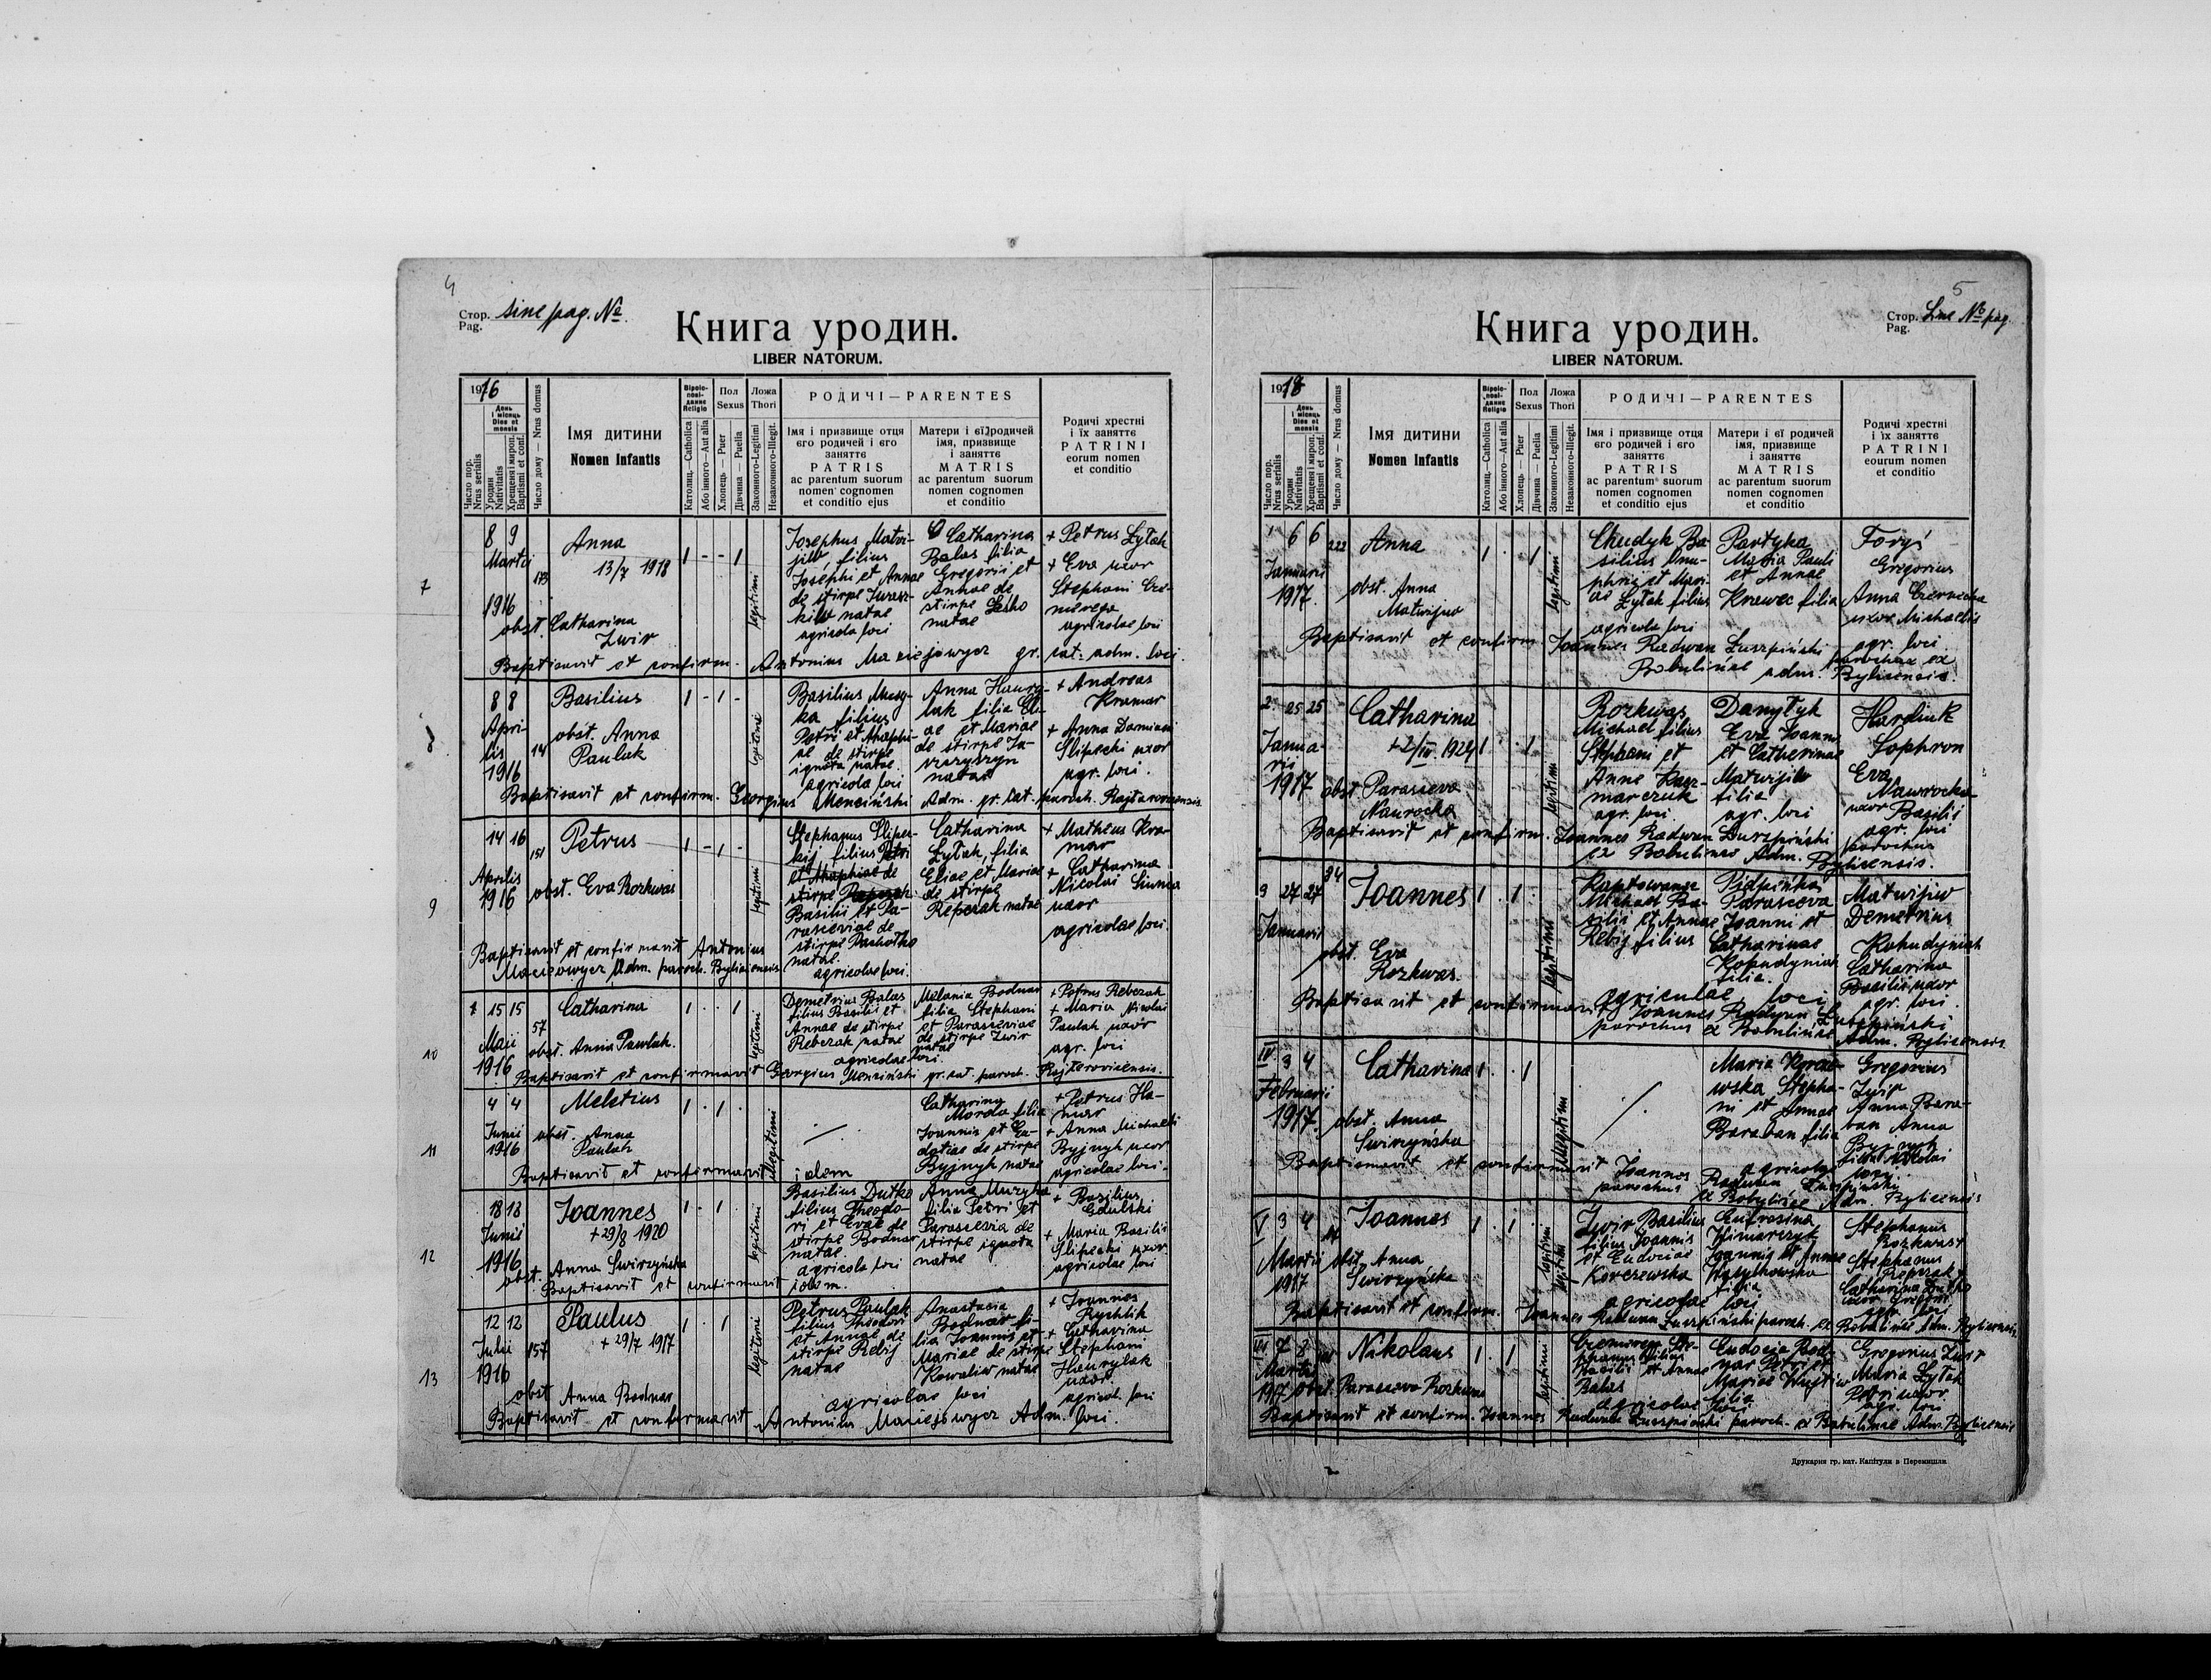 4
Стор. sine pag. №
Pag.
Книга уродин.
LIBER NATORUM.
1916
Число пор.
Nrus serialis
День
і місяць
Dies et
mensis
Уродин
Nativitatis
Хрещення і миропом.
Baptismi et conf.
Число дому — Nrus domus
Імя дитини
Nomen Infantis
Віроіс-
пові-
данне
Religio
Католиц.—Catholica
Або інного—Aut alia
Пол
Sexus
Хлопець — Puer
Дівчина — Puella
Ложа
Thori
Законного-Legitimi
Незаконного-Illegit.
РОДИЧІ — PARENTES
Імя і призвище отця
єго родичей і єго
заняттє
PATRIS
ac parentum suorum
nomen cognomen
et conditio ejus
Матери і єї родичей
імя, призвище
і заняттє
MATRIS
ac parentum suorum
nomen cognomen
et conditio
Родичі хрестні
і їх заняттє
PATRINI
eorum nomen
et conditio
7
8 9
Martii
1916
173
Anna
13/7 1918
obst. Catharina
Zwir
1 - - 1
legitimi
Josephus Matwi-
jiw filius
Josephi et Annae
de stirpe
natae
agricola loci
Catharina
Balas filia
Gregorii et
Annae de
stirpe Lesko
natae
+ Petrus Łytak
+ Eva uxor
Stephani
agricolae loci
Baptisavit et confirm. Antonius Maciejowycz gr. cat. adm. loci.
8
8 8
Apri-
lis
1916
14
Basilius
obst. Anna
Paulak
1 - 1 -
legitimi
Basilius Muzy-
ka filius
Petri et
de stirpe
ignota natae.
agricola loci
Anna Hawry-
lak filia Eli-
ae et Mariae
de stirpe
natae
+ Andreas
Kramar
+ Anna Damiani
Slipecki uxor
agr. loci.
Baptisavit et confirm. Georgius Menciński Adm. gr. cat. paroch. Rajtaroviensis
9
14 16
Aprilis
1916
151
Petrus
obst. Eva Rozkwas
1 - 1 -
legitimi
Stephanus Slipec-
kij filius Petri
et de
stirpe
Basilii et Pa-
rasceviae de
stirpe
natae.
agricolae loci.
Catharina
Łytak, filia
Eliae et Mariae
de stirpe
Repczak natae
+ Matheus Kra-
mar
+ Catharina
Nicolai
uxor
agricolae loci.
Baptisavit et confirmavit Antonius
Maciejowycz Adm. paroch. Byliciensis
10
15 15
Maii
1916
57
Catharina
obst. Anna Pawlak.
1 . . 1
legitimi
Demetrius Balas
filius Basilii et
Annae de stirpe
Rebczak natae
agricolae loci.
Melania Bodnar
filia Stephani
et Parasceviae
de stirpe Zwir
natae
+ Petrus Rebczak
+ Maria Nicolai
Paulak uxor
agr. loci
Baptisavit et confirmavit Georgius Menciński gr. cat. paroch. Rajteroviensis.
11
4 4
Junii
1916
Meletius
obst. Anna
Paulak
1 . 1
illegitimi
Catharina
Morda filia
Joannis et
de stirpe
Byjnyk natae
+ Petrus
+ Anna Michaeli
Byjnyk uxor
agricolae loci.
Baptisavit et confirmavit idem
12
18 18
Junii
1916
Joannes
+ 29/8 1920
obst. Anna Swirzyńska
1 - 1 .
legitimi
Basilius Dutko
filius Theodo-
ri et Evae de
stirpe Bodnar
natae.
agricola loci
Anna Muzyka
filia Petri et
Parascevia de
stirpe ignota
natae
+ Basilius
Gdulski
+ Maria Basilii
Slipecki uxor
agricolae loci
Baptisavit et confirmavit idem.
13
12 12
Julii
1916
157
Paulus
+ 29/7 1917
obst Anna Bodnar
1 . 1
legitimi
Petrus Paulak
filius Theodori
et Annae de
stirpe Rebij
natae
Anastasia
Bodnar fi-
lia Joannis et
Mariae de stirpe
Kowaliw natae
agricolae loci
+ Joannes
Rychlik
+ Catharina
Stephani
Hawrylak
uxor
agricol. loci
Baptisavit et confirmavit Antonius Maciejowycz Adm. loci.
5
Стор. Sine № pag.
Pag.
Книга уродин.
LIBER NATORUM.
1918
Число пор.
Nrus serialis
День
і місяць
Dies et
mensis
Уродин
Nativitatis
Хрещення і миропом.
Baptismi et conf.
Число дому — Nrus domus
Імя дитини
Nomen Infantis
Віроіс-
пові-
данне
Religio
Католиц.—Catholica
Або інного—Aut alia
Пол
Sexus
Хлопець — Puer
Дівчина — Puella
Ложа
Thori
Законного-Legitimi
Незаконного-Illegit.
РОДИЧІ — PARENTES
Імя і призвище отця
єго родичей і єго
заняттє
PATRIS
ac parentum suorum
nomen cognomen
et conditio ejus
Матери і єї родичей
імя, призвище
і заняттє
MATRIS
ac parentum suorum
nomen cognomen
et conditio
Родичі хрестні
і їх заняттє
PATRINI
eourum nomen
et conditio
1 6 6
Januarii
1917.
222
Anna
obst. Anna
Matwijiw
1 . 1
legitimi
Chudyk Ba-
silius Onu-
phrii et Mari-
ae Łytak filius
agricola loci
Partyka
Maria Pauli
et Annae
Krawec filia
Foryś
Gregorius
Anna
uxor Michaelis
agr. loci.
Baptisavit et confirm. Joannes Radwan Łuszpiński parochus ex
Bobulinae adm. Byliciensis.
2. 25 25
Janua-
rii
1917
Catharina
+ 2/IV. 1924
obst Parasceva
Nawrocka
1 . 1
legitimi
Rozkwas
Michael filius
Stephani et
Annae Kacz-
marczuk
agr. loci.
Danyłyk
Eva Joannis
et Catherinae
Matwijiw
filia
agr. loci
Hardink
Sophron
Eva
Nawrocka
uxor Basilii
agr. loci
Baptisavit et confirm. Joannes Radwan Łuszpiński parochus
ex Bobulinae Adm. Byliciensis.
3 27 27
Januarii
34
Joannes
obst. Eva
Rozkwas.
1 . 1 .
legitimi
Michael Ba-
silii et Annae
Rebij filius
Parasceva
Joanni et
Catharinae
Kohudyniak
filia.
agricolae loci
Matwijiw
Demetrius
Kohudyniak
Catharina
Basilii uxor
agr. loci.
Baptisavit et confirmavit Joannes Radwan Łuszpiński
parochus ex Bobulinae Adm. Byliciensis
IV 3 4
Februarii
1917.
Catharina
obst. Anna
Swirzyńska
1 . 1
illegitimi
Maria
Stepha-
ni et Annae
Baraban filia
agricolae loci
Gregorius
Zwir
Anna Bara-
ban Anna
Byjnyk
Baptismavit et confirmavit Joannes Radwan Łuszpiński
parochus ex Bobylinae Adm. Byliciensis
V 3 4
Martii
1917
Joannes
obst. Anna
Swirzyńska
1 . 1 .
legitimi
Zwir Basilius
filius Joannis
et Eudociae
Korczewska
agricolae loci
Eufrosina
Joannis et Annae
filia
Stephanus
Rozkwas
Stephanus
Repczak
Catharina Dutko
uxor Gregorii
agr. loci
Baptisavit et confirm. Joannes Radwan Łuszpiński paroch. ex Bobulinae Adm. Byliciensis
VI 7 8
Martii
1917
Nikolaus
obst. Parasceva Rozkwas
1 . 1
legitimi
Ste-
phanus filius
Basilii et Annae
Balas
agricolae loci.
Eudocia Bod-
nar Petri et
Mariae
filia
Gregorius Zwir
Maria Łytak
Petri uxor
agr. loci
Baptisavit et confirm. Joannes Radwan Łuszpiński paroch. ex Bobulinae Adm. Byliciensis
Друкарня гр. кат. Капітули в Перемишли